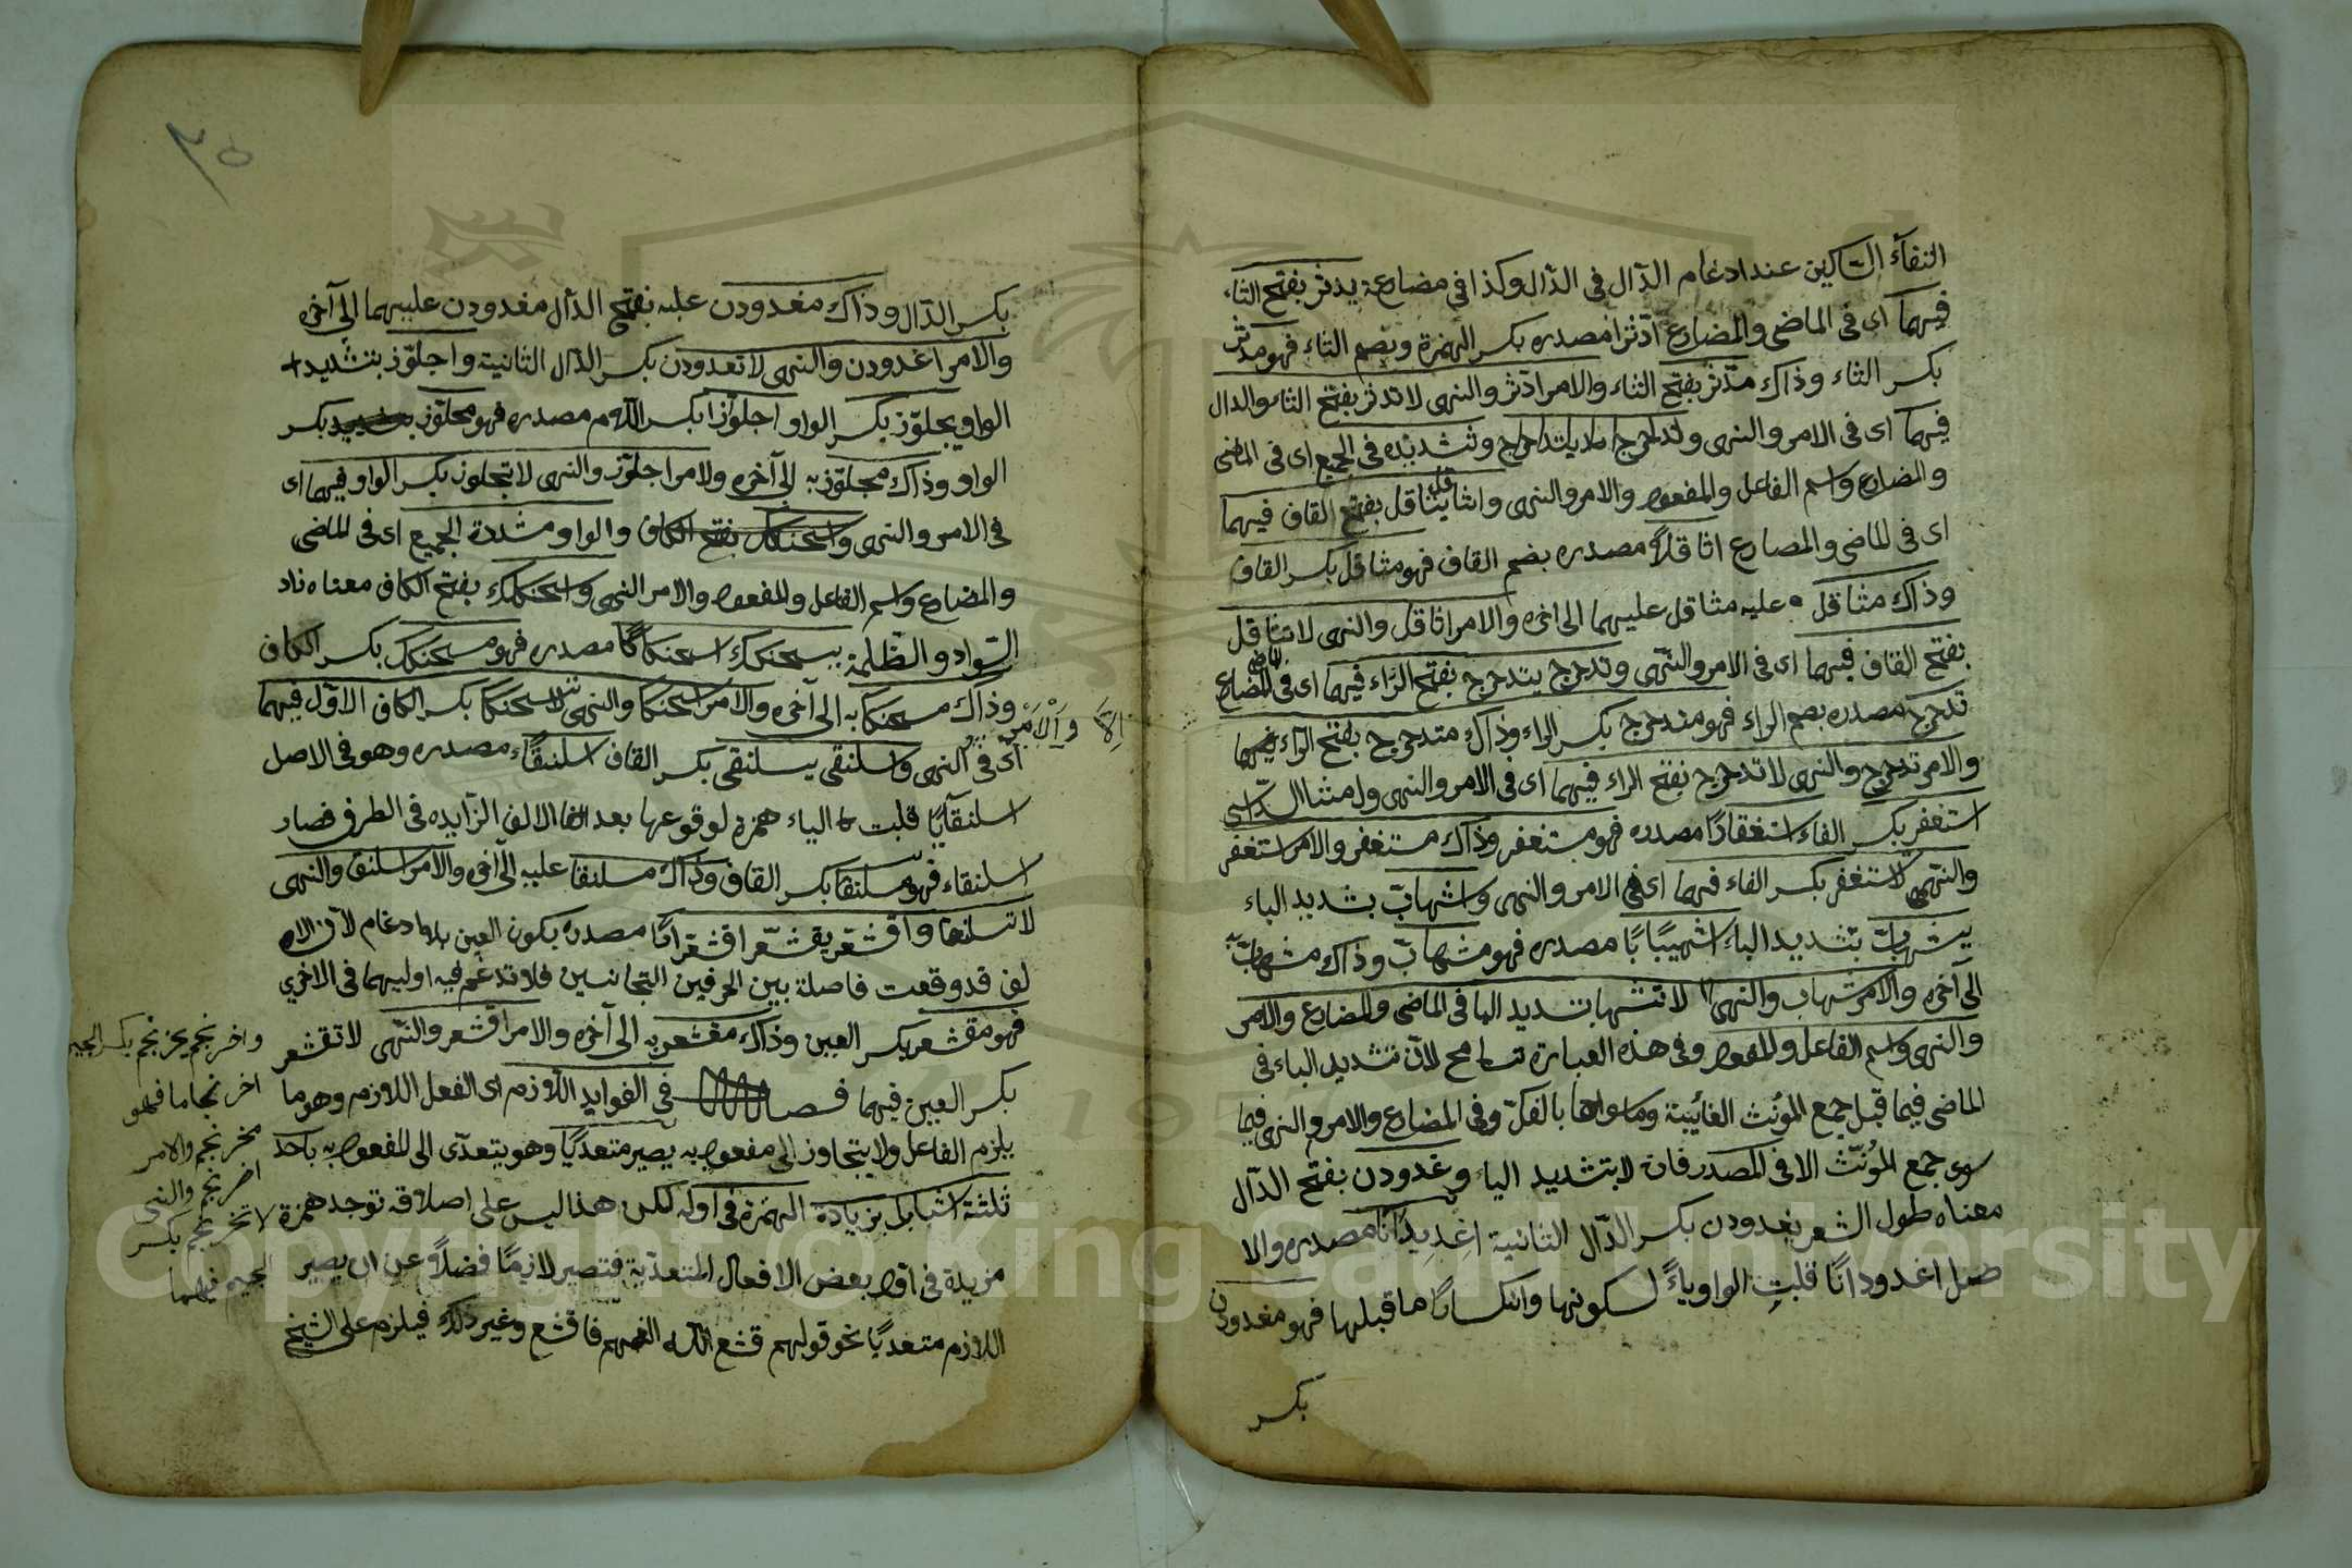 التقآء الساكنين عند ادغام الدّال فى الدّال وكذا فى مضارعه يدثر بفتح الثاء
فيهما اى فى الماضى والمضارع ادّثرا مصدره بكسر الهمزة وبضم الثاء فهو مدّثر
بكسر الثاء وذاك مدّثر بفتح الثاء والامر ادّثر والنهى لا تدثر بفتح الثاء والدال
فيهما اى فى الامر والنهى وتشديده فى الجميع اى فى الماضى
والمضارع واسم الفاعل والمفعول والامر والنهى واثاقل يثاقل بفتح القاف فيهما
اى فى الماضى والمضارع اثاقلاً مصدره بضم القاف فهو مثاقل بكسر القاف
وذاك مثاقل عليه مثاقل عليهما الى اخره والامر اثاقل والنهى لا تثاقل
بفتح القاف فيهما اى فى الامر والنّهى وتدحرج يتدحرج بفتح الرّاء فيهما اى فى الماضى المضارع
تدحرج مصدره بضم الراء فهو متدحرج بكسر الراء وذاك متدحرج بفتح الراء
والامر تدحرج والنهى لا تدحرج بفتح الراء فيهما اى فى الامر والنهى ومثال السّداسى
استغفر بكسر الفاء استغفارًا مصدره فهو مستغفر وذاك مستغفر والامر استغفر
والنّهى لا تستغفر بكسر الفاء فيهما اى فى الامر والنهى واشهابّ بتشديد الباء
يشهابّ بتشديد الباء اشهيبابًا مصدره فهو مشهابّ وذاك مشهابّ به
الى آخره والامر اشهاب والنهى لا تشهاب بتشديد البا فى الماضى والمضارع والامر
والنهى واسم الفاعل والمفعول وفى هذه العبارة تسامح لانّ تشديد الباء فى
الماضى فيما قبل جمع المؤنث الغائبة وما سواها بالفكّ وفى المضارع والامر والنهى فيما
سوى جمع المؤنّث الا فى المصدر فان لا بتشديد الباء وغدودن بفتح الدّال
معناه طول الشعر يغدودن بكسر الدّال الثانية اغديدانًا مصدره والا
صل اغدودانًا قلبت الواو ياءً لسكونها وانكسار ما قبلها فهو مغدودن
بكسر
٣٥
بكسر الدّال وذاك مغدودن عليه بفتح الدّال مغدودن عليهما الى آخره
والامر اغدودن والنهى لا تغدودن بكسر الدّال الثانية واجلوّز بتشديد
الواو يجلوّز بكسر الواو اجلوّزا بكسر اللام مصدره فهو مجلوّز بكسر
الواو وذاك مجلوّز به الى آخره ولامر اجلوّز والنهى لا تجلوز بكسر الواو فيهما اى
فى الامر والنهى والواو مشددة الجميع اى فى الماضى
والمضارع واسم الفاعل والمفعول والامر النهى واسحنكك بفتح الكاف معناه زاد
السّواد والظّلمة يسحنكك اسحنكاكًا مصدره فهو مسحنكك بكسر الكاف
وذاك مسحنكا به الى آخره والامر اسحنكا والنهى لا تسحنكا بكسر الكاف الاوّل فيهما
الا والامر
اى فى النهى واسلنقى يسلنقى بكسر القاف اسلنقاءً مصدره وهو فى الاصل
اسلنقايًا قلبت الياء همزة لوقوعها بعد الالف الزّايده فى الطرف فصار
اسلنقاء فهو مسلنقا بكسر القاف وذاك مسلنقا عليه الى آخره والامر اسلنق والنهى
لا تسلنقا واقشعرّ يقشعّر اقشعرارًا مصدره بكون العين بلا ادغام لان الا
لف قد وقعت فاصلة بين الحرفين المتجانسين فلا تدغم فيه اوليهما فى الاخرى
فهو مقشعر بكسر العين وذاك مقشعر به الى آخره والامر اقشعر والنّهى لا تقشعر
بكسر العين فيهما فصل فى الفوايد اللّازم اى الفعل اللازم وهو ما
يلزم الفاعل ولا يتجاوز الى مفعول به يصير متعديًا وهو يتعدّى الى المفعول به باحد
ثلثة اشيا بزيادة الهمزة فى اوله لكن هذا ليس على اصلاقه توجد همزة
مزيدة فى اوّل بعض الافعال المتعدّية فتصير لازمًا فضلاً عن ان يصير
اللازم متعديًا نحو قولهم قشع اللّه الغيم فاقشع وغير ذلك فيلزم على الشيخ
واخرنجم يخرنجم بكسر الجيم
اخرنجاما فهو
مخرنجم والامر
اخرنجم والنهى
لا تخرنجم بكسر
الجيم فيهما
Copyright © King Saud University